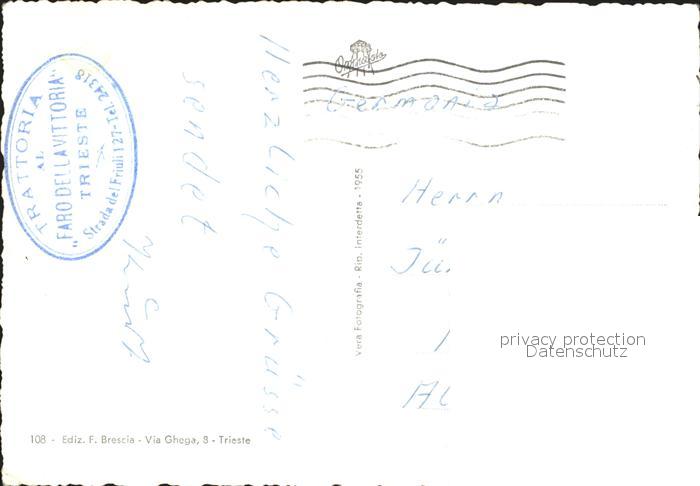 TRATTORIA
AL
"FARO DELLA VITTORIA"
TRIESTE
Strada del Friuli 127 - Tel. 24318
Herzliche Grüsse
sendet
Germania
Herrn
Vera Fotografia - Rip. interdetta - 1955
privacy protection
Datenschutz
108 - Ediz. F. Brescia - Via Ghega, 8 - Trieste